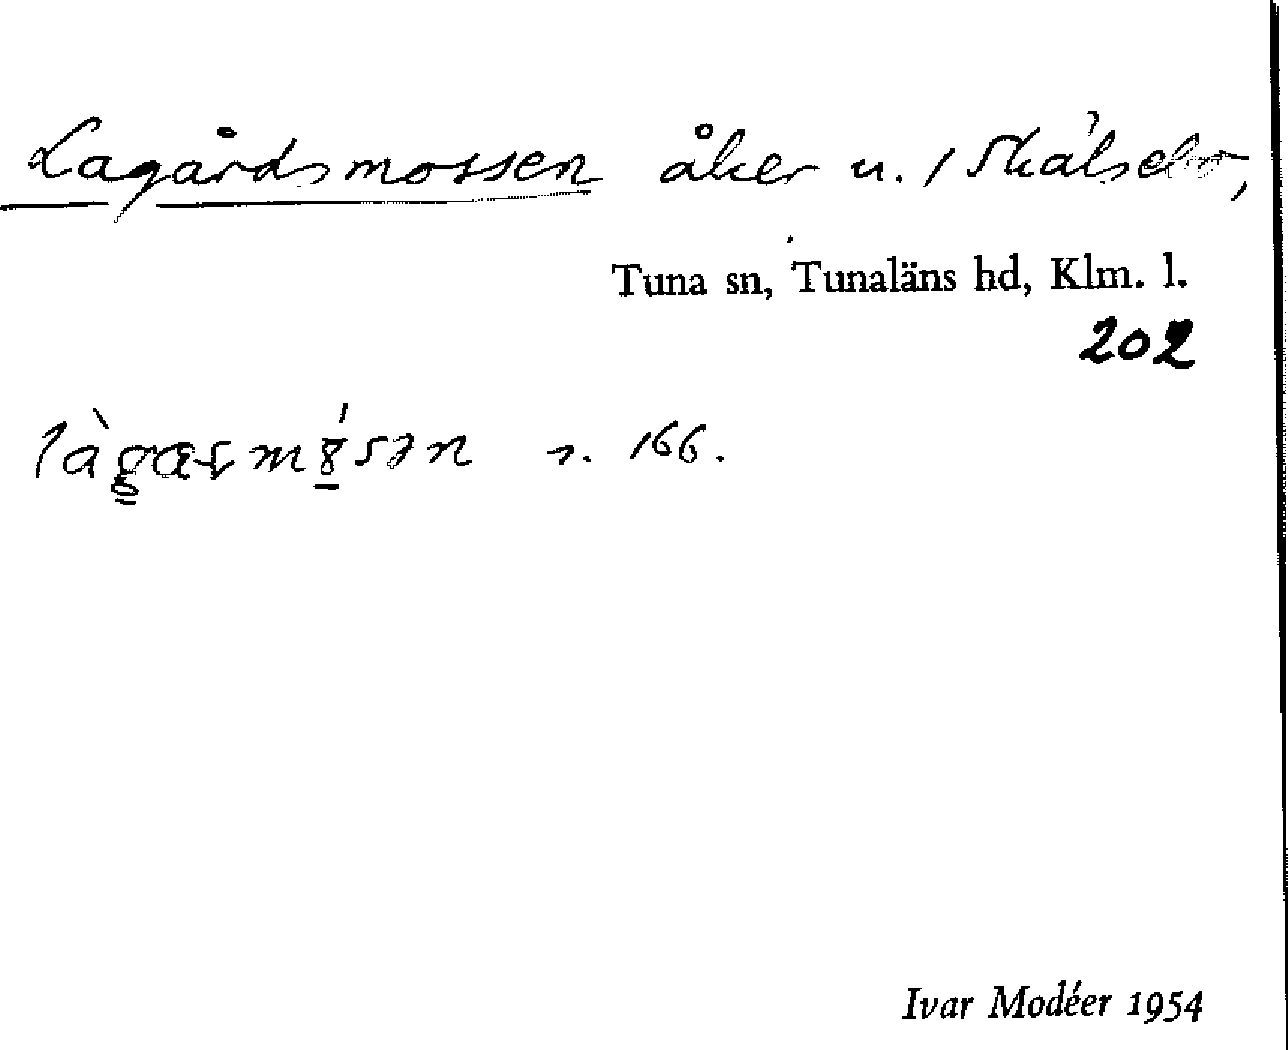 Lagårdsmossen åker u. / Skälsebo,
Tuna sn, Tunaläns hd, Klm. l.
202
s. 166.
Ivar Modéer 1954